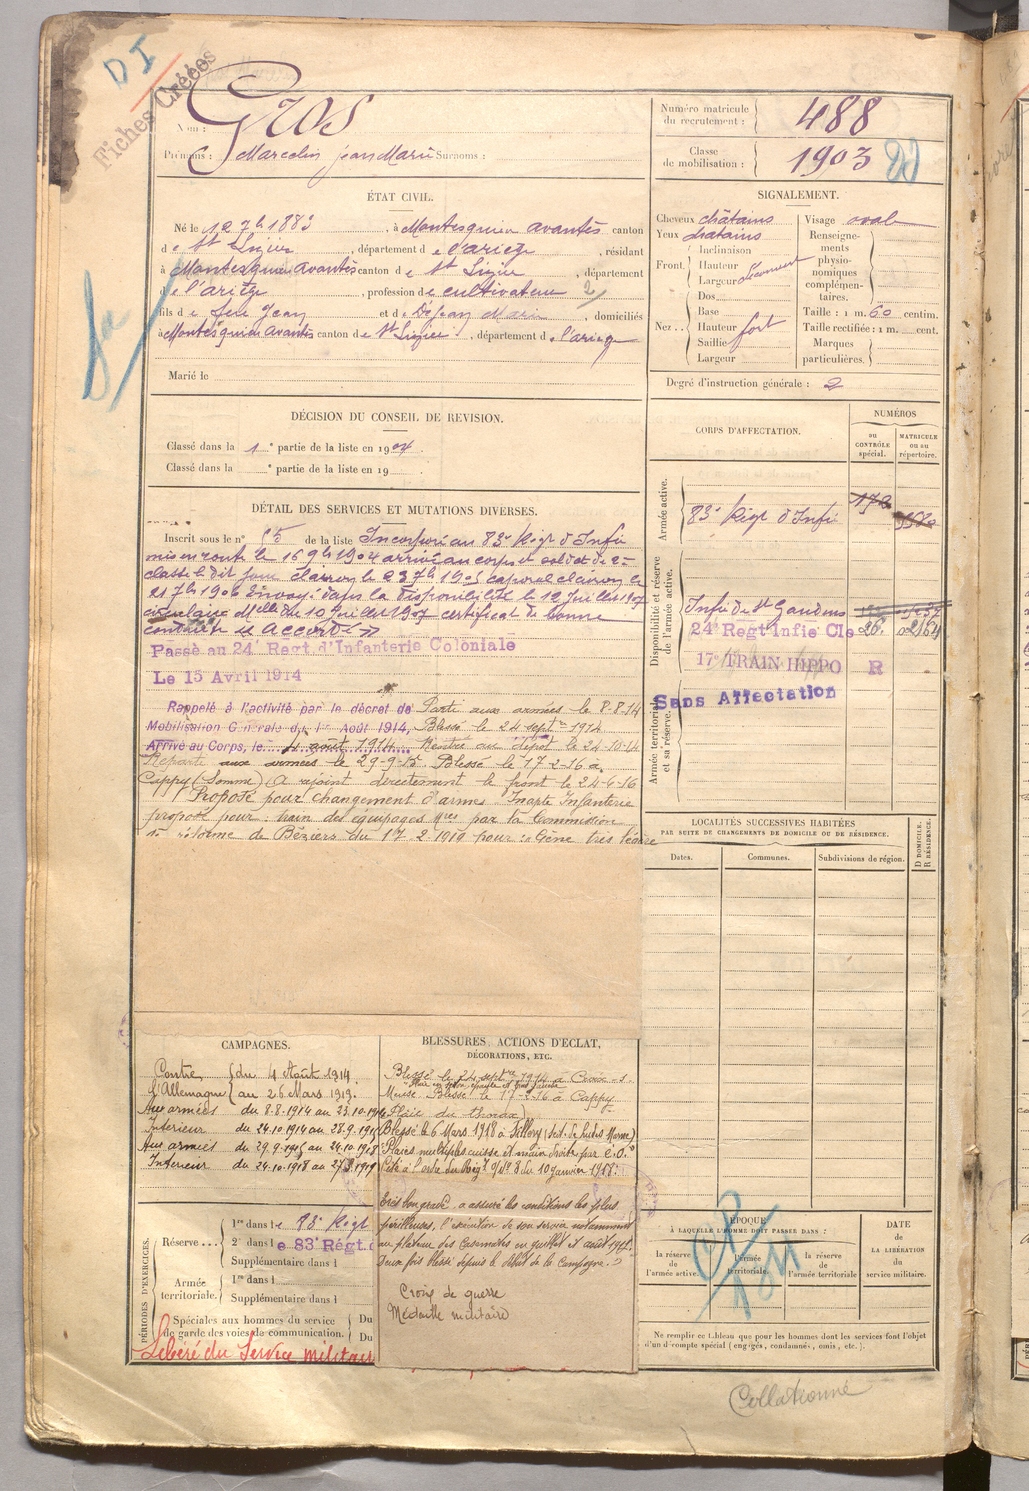 DI
Fiches Créées
Nom : Gros
Prénoms : Marcelin Jean Marie Surnoms :
Numéro matricule du recrutement : 488
Classe de mobilisation : 1903
ÉTAT CIVIL.
Né le 12 7b 1883, à Montesquieu avantès canton
de St Lizier, département de l'ariège, résidant
à Montesquieu avantès canton de St Lizier, département
de l'ariège, profession de cultivateur 2
fils de feu Jean et de Dejean Marie, domiciliés
à Montesquieu avantès canton de St Lizier, département de l'ariège
Marié le
SIGNALEMENT.
Cheveux châtains
Yeux châtains
Front. Inclinaison
Hauteur
Largeur
Nez.. Dos
Base
Hauteur fort
Saillie
Largeur
Visage oval
Renseignements physionomiques complémentaires.
Taille : 1 m. 60 centim.
Taille rectifiée : 1 m. cent.
Marques particulières.
Degré d'instruction générale : 2
DÉCISION DU CONSEIL DE REVISION.
Classé dans la 1e partie de la liste en 1904.
Classé dans la e partie de la liste en 19
DÉTAIL DES SERVICES ET MUTATIONS DIVERSES.
Inscrit sous le n° 15 de la liste Incorporé au 83e Régt d'Infie
mis en route le 16 9b 1904 arrivé au corps et soldat de 2e
classe le dit jour clairon le 23 7b 1905 caporal clairon le
21 7b 1906 Envoyé dans la disponibilité le 12 Juillet 1907
circulaire Mlle du 10 Juillet 1907 certificat de bonne
conduite "accordé"
Passé au 24e Regt d'Infanterie Coloniale
Le 15 Avril 1914
Rappelé à l'activité par le décret de Parti aux armées le 8-8-14
Mobilisation Générale du 1er Août 1914, Blessé le 24 septre 1914
Arrivé au Corps, le 4 août 1914. Rentré au dépôt le 24-10-14
Reparti aux armées le 29-9-15. Blessé le 17-2-16 à
Cappy (Somme) A rejoint directement le front le 24-6-16
Proposé pour changement d'armes. Inapte Infanterie
proposé pour train des équipages par la Commission
de Béziers du 17-2-1919 pour : Gêne très légère
CORPS D'AFFECTATION.
NUMÉROS
au CONTRÔLE spécial.
MATRICULE ou au répertoire.
Armée active.
83e Régt d'Infie
Disponibilité et réserve de l'armée active.
Infie de St Gaudens
24e Regt Infie Cle 26.
17e TRAIN HIPPO R
Sans Affectation
Armée territoriale et sa réserve.
LOCALITÉS SUCCESSIVES HABITÉES
PAR SUITE DE CHANGEMENTS DE DOMICILE OU DE RÉSIDENCE.
Dates.
Communes.
Subdivisions de région.
D DOMICILE.
R RÉSIDENCE.
CAMPAGNES.
Contre l'Allemagne du 4 Août 1914
au 26 Mars 1919.
Aux armées du 8-8-1914 au 23-10-1914
Intérieur du 24-10-1914 au 28-9-1915
Aux armées du 29-9-1915 au 24-10-1918
Intérieur du 24-10-1918 au
BLESSURES, ACTIONS D'ÉCLAT,
DÉCORATIONS, ETC.
Blessé le 24 septre 1914 à
Meuse. Blessé le 17-2-16 à Cappy
(Plaie du thorax)
Blessé le 6 Mars 1918 à Sillery (Marne)
Plaies multiples cuisse et main droite par E.O.
Cité à l'ordre du Régt n° 8 du 10 janvier 1918:
"Très bon gradé, a assuré les conditions les plus
périlleuses, l'exécution de son service notamment
au plateau des Casemates en juillet et août 1917.
Deux fois blessé depuis le début de la Campagne."
Croix de guerre
Médaille militaire
PÉRIODES D'EXERCICES.
Réserve... 1re dans le 83e Régt
2e dans le 83e Régt.
Supplémentaire dans l
Armée territoriale. 1re dans l
Supplémentaire dans l
Spéciales aux hommes du service de garde des voies de communication. Du
Du
Libéré du Service militaire
ÉPOQUE
À LAQUELLE L'HOMME DOIT PASSER DANS :
la réserve de l'armée active.
l'armée territoriale.
la réserve de l'armée territoriale
DATE DE LA LIBÉRATION du service militaire.
Ne remplir ce tableau que pour les hommes dont les services font l'objet
d'un décompte spécial (engagés, condamnés, omis, etc.).
Collationné